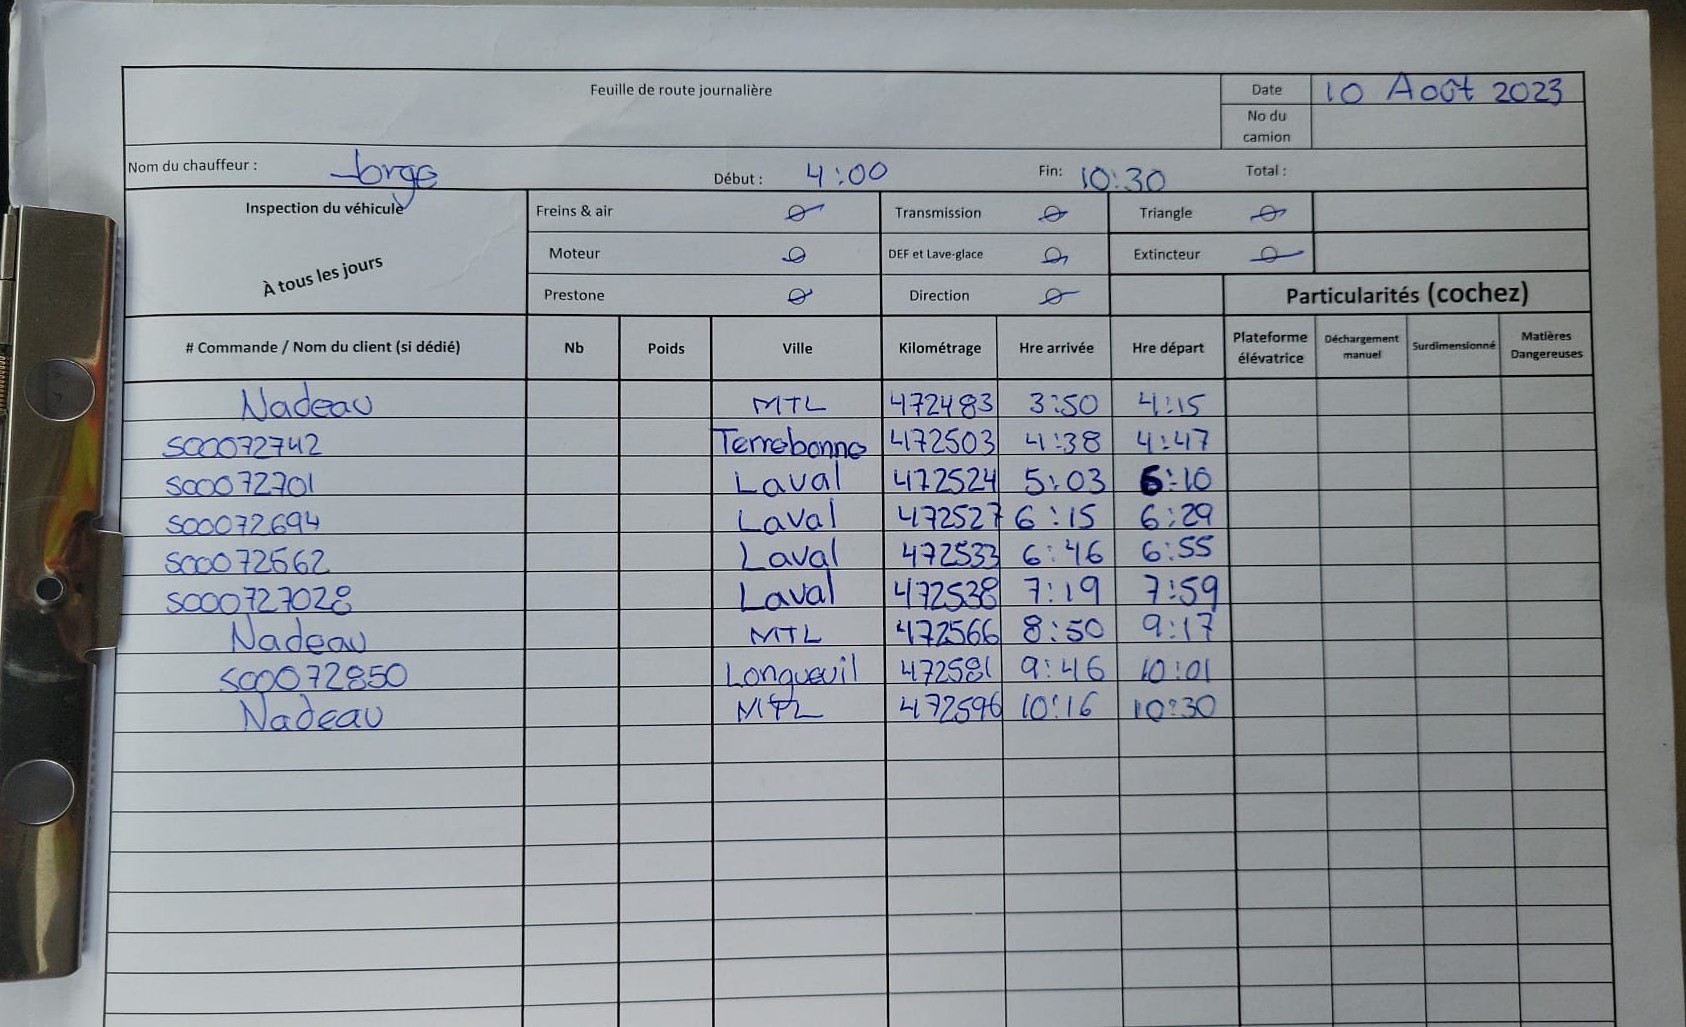 Feuille de route journalière Date 10 Août 2023
No du camion
Nom du chauffeur : Jorge Début : 4:00 Fin: 10:30 Total :
Inspection du véhicule Freins & air Transmission Triangle
À tous les jours Moteur DEF et Lave-glace Extincteur
Prestone Direction Particularités (cochez)
# Commande / Nom du client (si dédié) Nb Poids Ville Kilométrage Hre arrivée Hre départ Plateforme élévatrice Déchargement manuel Surdimensionné Matières Dangereuses
Nadeau MTL 472483 3:50 4:15
S00072742 Terrebonne 472503 4:38 4:47
S00072701 Laval 472524 5:03 6:10
S00072694 Laval 472527 6:15 6:29
S00072562 Laval 472533 6:46 6:55
S000727028 Laval 472538 7:19 7:59
Nadeau MTL 472566 8:50 9:17
S00072850 Longueuil 472581 9:46 10:01
Nadeau MTL 472596 10:16 10:30